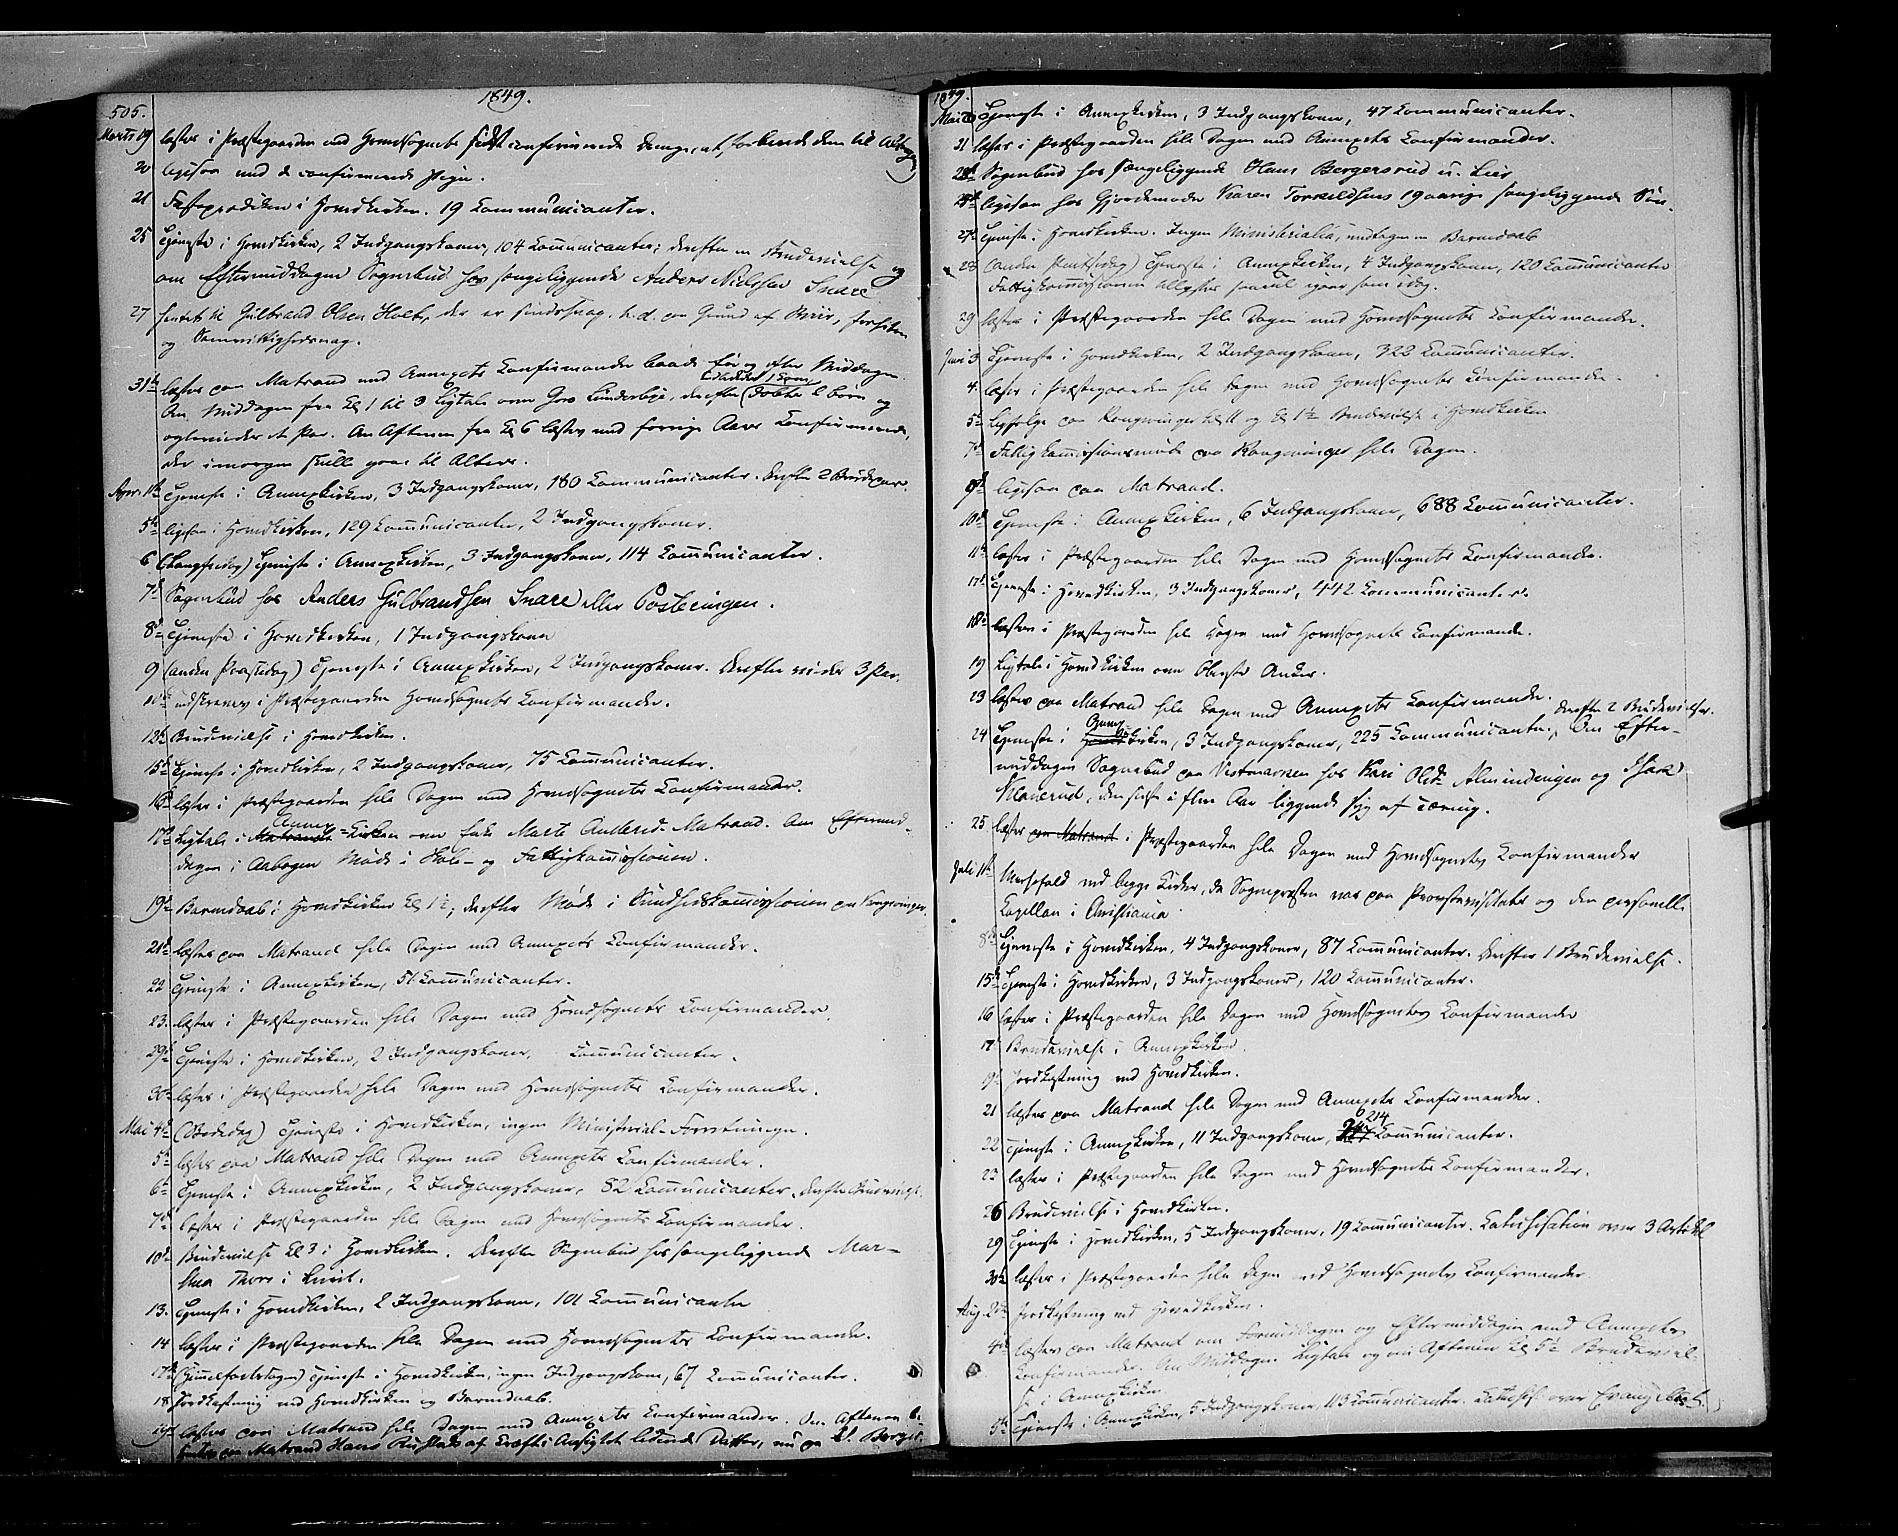 505.
1849.
Marts 19 læster i Præstegaarden med Hovedsognets sidst confirmerede Drenge, at forberede dem til Altergang
20 ligesaa med de confirmerede Piger.
21 Fasteprædiken i Hovedkirken. 19 Communicanter.
25 Tjeneste i Hovedkirken, 2 Indgangskoner, 104 Communicanter; derefter en Brudevielse og
om Eftermiddagen Sognebud hos sengeliggende Anders Nielssen Snare
27 hentet til Gulbrand Olsen Holt, der er sindssvag,
og Samvittighedsnag.
31te læster paa Matrand med Annexets Confirmander baade før og efter Middagen
Om Middagen fra Kl 1 til 3 Ligtale over Joro Linderbye, derefter (indledet 1 Kone) døbte 2 Børn og
egteviede et Par. Om Aftenen fra Kl 6 læster med forrige Aars Confirmerede,
der imorgen skulle gaae til Alters.
Apr. 1te Tjeneste i Annexkirken, 3 Indgangskoner, 180 Communicanter. Derefter 2 Brudepar.
5te ligesaa i Hovedkirken, 129 Communicanter, 2 Indgangskoner.
6 (Langfredag) Tjeneste i Annexkirken, 3 Indgangskoner, 114 Communicanter.
7de Sognebud hos Anders Gulbrandsen Snare eller Posteringen.
8de Tjeneste i Hovedkirken, 1 Indgangskone
9 (anden Paaskedag) Tjeneste i Annexkirken, 2 Indgangskoner. Derefter viedes 3 Par.
11te indskreves i Præstegaarden Hovedsognets Confirmander.
12te Brudevielse i Hovedkirken.
15de Tjeneste i Hovedkirken, 2 Indgangskoner, 75 Communicanter.
16de læster i Præstegaarden hele Dagen med Hovedsognets Confirmander.
17de Ligtale i Annex-Kirken over Marte Matrand. Om Eftermid-
dagen i Aabogen Møde i Skole- og Fattigkommissionen.
19de Barnedaab i Hovedkirken Kl 1½; derefter Møde i Sundhedskommissionen paa Kongsvinger.
21de læster paa Matrand hele Dagen med Annexets Confirmander.
22 Tjeneste i Annexkirken, 51 Communicanter.
23. læster i Præstegaarden hele Dagen med Hovedsognets Confirmander.
29de Tjeneste i Hovedkirken, 2 Indgangskoner, Communicanter.
30te læster i Præstegaarden hele Dagen med Hovedsognets Confirmander.
Mai 4de (Bededag) Tjeneste i Hovedkirken, ingen Ministerial-Forretninger.
5te læster paa Matrand hele Dagen med Annexets Confirmander.
6te Tjeneste i Annexkirken, 2 Indgangskoner, 82 Communicanter, derefter Brudevielse.
7de læster i Præstegaarden hele Dagen med Hovedsognets Confirmander.
10de Brudevielse Kl 3 i Hovedkirken. Derefter Sognebud hos sengeliggende Mar-
then Thors i
13. Tjeneste i Hovedkirken, 2 Indgangskoner, 101 Communicanter
14 læster i Præstegaarden hele Dagen med Hovedsognets Confirmander.
17de (Himmelfartsdagen) Tjeneste i Hovedkirken, ingen Indgangskone, 67 Communicanter.
18 Jordkastning ved Hovedkirken og Barnedaab.
19de læster paa Matrand hele Dagen med Annexets Confirmander. Om Aftenen
paa Matrand Hans af Kræft i Ansigtet lidende Datter,
1849.
Mai 20 Tjeneste i Annexkirken, 3 Indgangskoner, 47 Communicanter.
21 læster i Præstegaarden hele Dagen med Annexets Confirmander.
Sognebud hos sengeliggende Hans Bergersrud u. Lier
ligesaa hos Gjordemoder Karen Torkeldsens 19aarige sengeliggende Søn.
27de Tjeneste i Hovedkirken. Ingen Ministerialia, undtagen en Barnedaab
28 (anden Pintsedag) Tjeneste i Annexkirken, 4 Indgangskoner, 120 Communicanter
Fattigkommissionen saavel igaar som idag.
29 læster i Præstegaarden hele Dagen med Hovedsognets Confirmander.
Juni 3 Tjeneste i Hovedkirken, 2 Indgangskoner, 322 Communicanter.
4. læster i Præstegaarden hele Dagen med Hovedsognets Confirmander.
5te Ligfølge paa Kongsvinger Kl 11 og Kl 1½ Brudevielse i Hovedkirken
7de Fattigkommissionsmøde paa Kongsvinger hele Dagen.
9de ligesaa paa Matrand.
10de Tjeneste i Annexkirken, 6 Indgangskoner, 688 Communicanter.
11te læster i Præstegaarden hele Dagen med Hovedsognets Confirmander.
17de Tjeneste i Hovedkirken, 3 Indgangskoner, 442 Communicanter.
18de læster i Præstegaarden hele Dagen med Hovedsognets Confirmander.
19 Ligtale i Hovedkirken over Oberst Anker.
23 læster paa Matrand hele Dagen med Annexets Confirmander.
24 Tjeneste i Annexkirken, 3 Indgangskoner, 225 Communicanter, derefter 2 Brudevielser. Om Efter-
middagen Sognebud paa Vestmarken hos Kari Olsdr. Almindingen og
den sidste i flere Aar liggende syg af Tæring.
25 læster paa Matrand i Præstegaarden hele Dagen med Hovedsognets Confirmander
Juli 1te Messefald ved begge Kirker, da Sognepræsten var paa Provstevisitats og den personelle
Kapellan i Christiania
8de Tjeneste i Hovedkirken, 4 Indgangskoner, 87 Communicanter. Derefter 1 Brudevielse.
15de Tjeneste i Hovedkirken, 3 Indgangskoner, 120 Communicanter.
16 læster i Præstegaarden hele Dagen med Hovedsognets Confirmander
Brudevielse i Annexkirken.
19de Jordkastning ved Hovedkirken.
21 læster paa Matrand hele Dagen med Annexets Confirmander.
22 Tjeneste i Annexkirken, 11 Indgangskoner, 214 Communicanter.
23 læster i Præstegaarden hele Dagen med Hovedsognets Confirmander.
26 Brudevielse i Hovedkirken.
29 Tjeneste i Hovedkirken, 5 Indgangskoner, 19 Communicanter. Katechisation over 3 Artikel
30te læster i Præstegaarden hele Dagen med Hovedsognets Confirmander
Aug. 2den Jordkastning ved Hovedkirken.
4de læster paa Matrand om Formiddagen og Eftermiddagen med Annexets
Confirmander. Om Middagen Ligtale og om Aftenen Kl 5½ Brudeviel-
se i Annexkirken
5te Tjeneste i Annexkirken, 5 Indgangskoner, 113 Communicanter. Katechis. over Evangeliet.